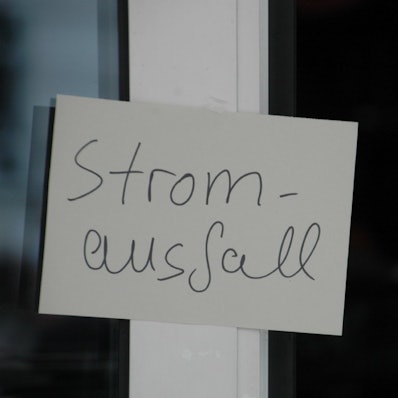 Strom-
ausfall